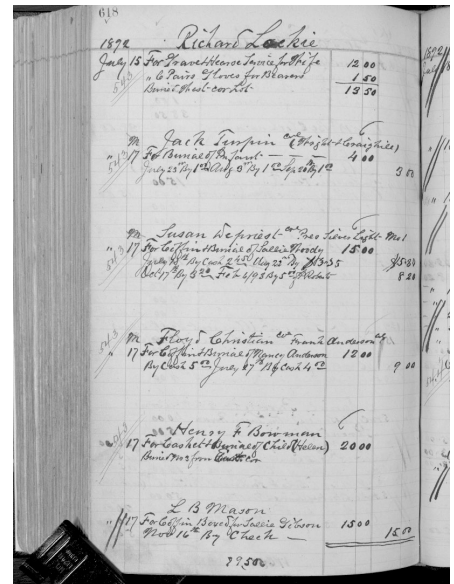 618
1892 Richard Lackie
July 15 For Grave & Hearse Service for Wife 12 00
" 6 Pairs Gloves for Bearers 1 50
Buried West cor Lot 13 50
Mr Jack Turpin col (Wright & Craighill)
5413 " 17 For Burial of Infant 4 00
July 25 By 1 00 Aug 3rd By 1 00 Sep 20 By 1 00 3 00
Mr Susan Depriest col Light
5413 " 17 For Coffin & Burial of Sallie Woody 15 00
July 18th By Cash 2 450 Aug 25th By
Oct 17th By Feb 4/93 By 5 00 8 20
5413 Mr Floyd Christian col Frank Anderson col
" 17 For Coffin & Burial of Nancy Anderson 12 00
By Cash 5 00 July 27th By Cash 4 00 9 00
Henry F Bowman
17 For Casket & Burial of Child (Helen) 20 00
Buried from East cor
L B Mason
17 For Coffin Boxed for Sallie Gibson 15 00
Nov 16th By Check 15 00